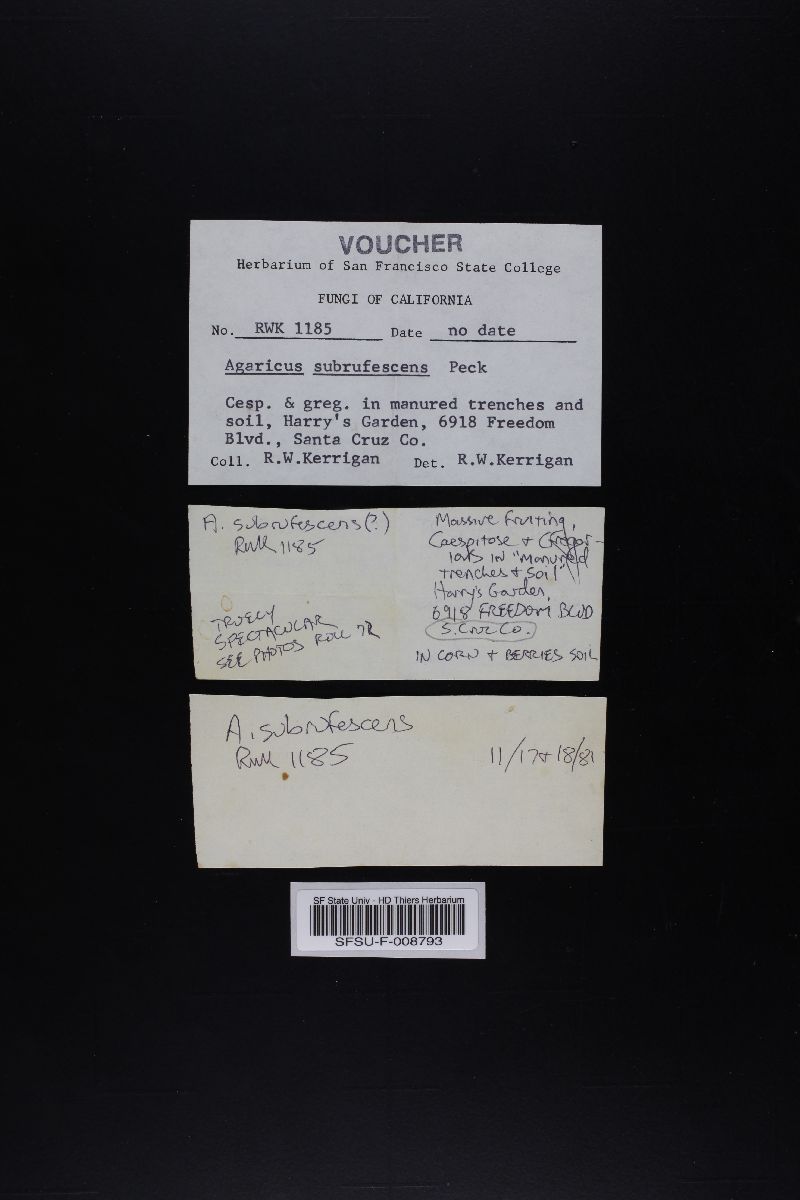 VOUCHER
Herbarium of San Francisco State College
FUNGI OF CALIFORNIA
No. RWK 1185 Date no date
Agaricus subrufescens Peck
Cesp. & greg. in manured trenches and
soil, Harry's Garden, 6918 Freedom
Blvd., Santa Cruz Co.
Coll. R.W.Kerrigan Det. R.W.Kerrigan
A. subrufescens(?)
RWK 1185
TRUELY
SPECTACULAR
SEE PHOTOS ROLL 72
Massive fruiting,
Caespitose + Gregar-
ious in "Manured
trenches + soil"
Harry's Garden,
6918 FREEDOM BLVD
S. Cruz Co.
IN CORN + BERRIES SOIL
A. subrufescens
RWK 1185
11/17+18/81
SF State Univ - HD Thiers Herbarium
SFSU-F-008793